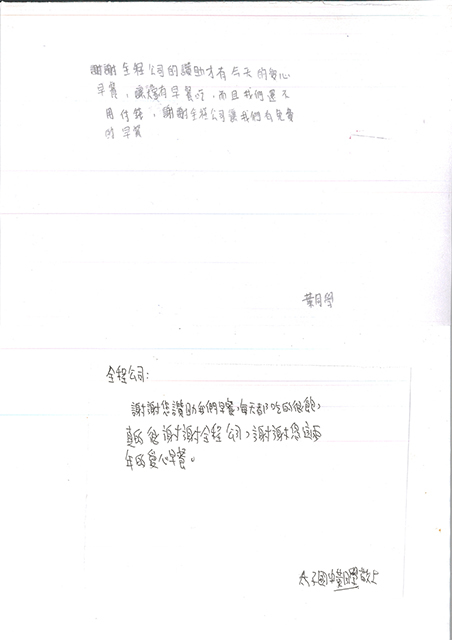 謝謝全程公司的讚助才有今天的愛心
早餐，讓我有早餐吃，而且我們還不
用付錢，謝謝全程公司讓我們有免費
的早餐
全程公司：
謝謝您讚助我們早餐，每天都吃的很飽，
真的很謝謝全程公司，謝謝您這兩
年的愛心早餐。
太子國中 敬上